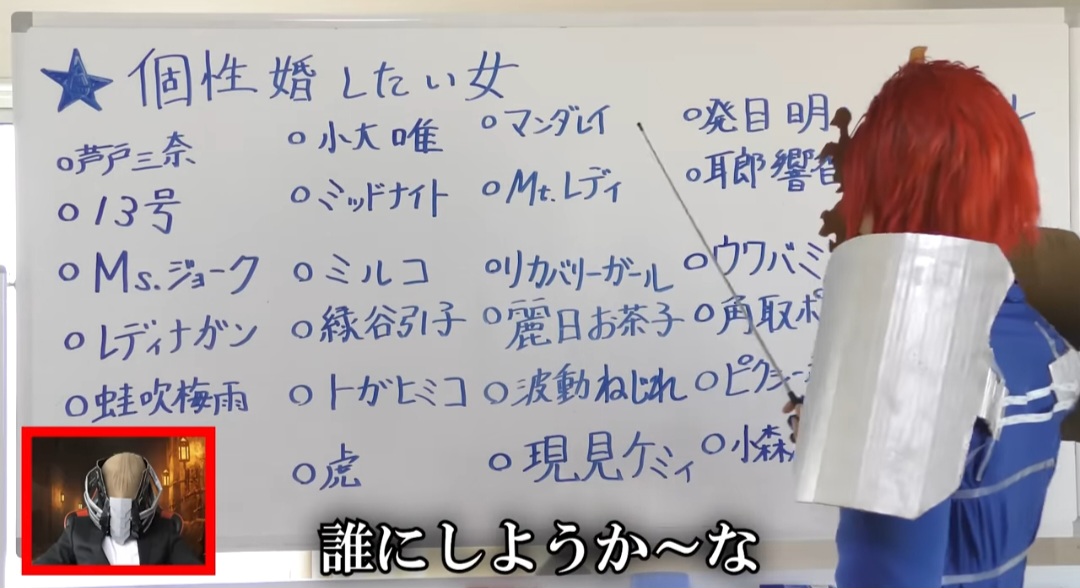 ★個性婚したい女
○芦戸三奈
○13号
○Ms.ジョーク
○レディナガン
○蛙吹梅雨
○小大唯
○ミッドナイト
○ミルコ
○緑谷引子
○トガヒミコ
○虎
○マンダレイ
○Mt.レディ
○リカバリーガール
○麗日お茶子
○波動ねじれ
○現見ケミィ
○発目明
○耳郎響香
○ウワバミ
○角取ポ
○ピクシー
○小森
誰にしようか～な